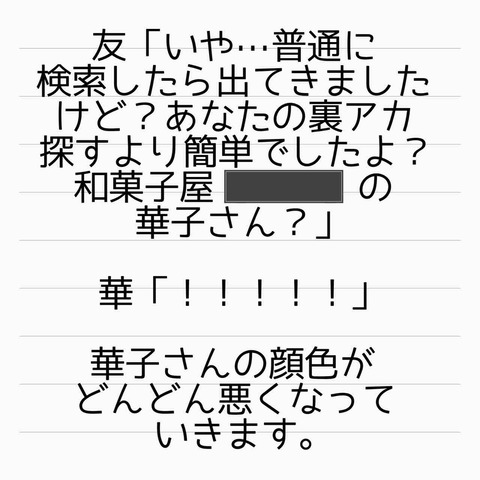 友「いや…普通に
検索したら出てきました
けど？あなたの裏アカ
探すより簡単でしたよ？
和菓子屋 の
華子さん？」
華「！！！！！」
華子さんの顔色が
どんどん悪くなって
いきます。